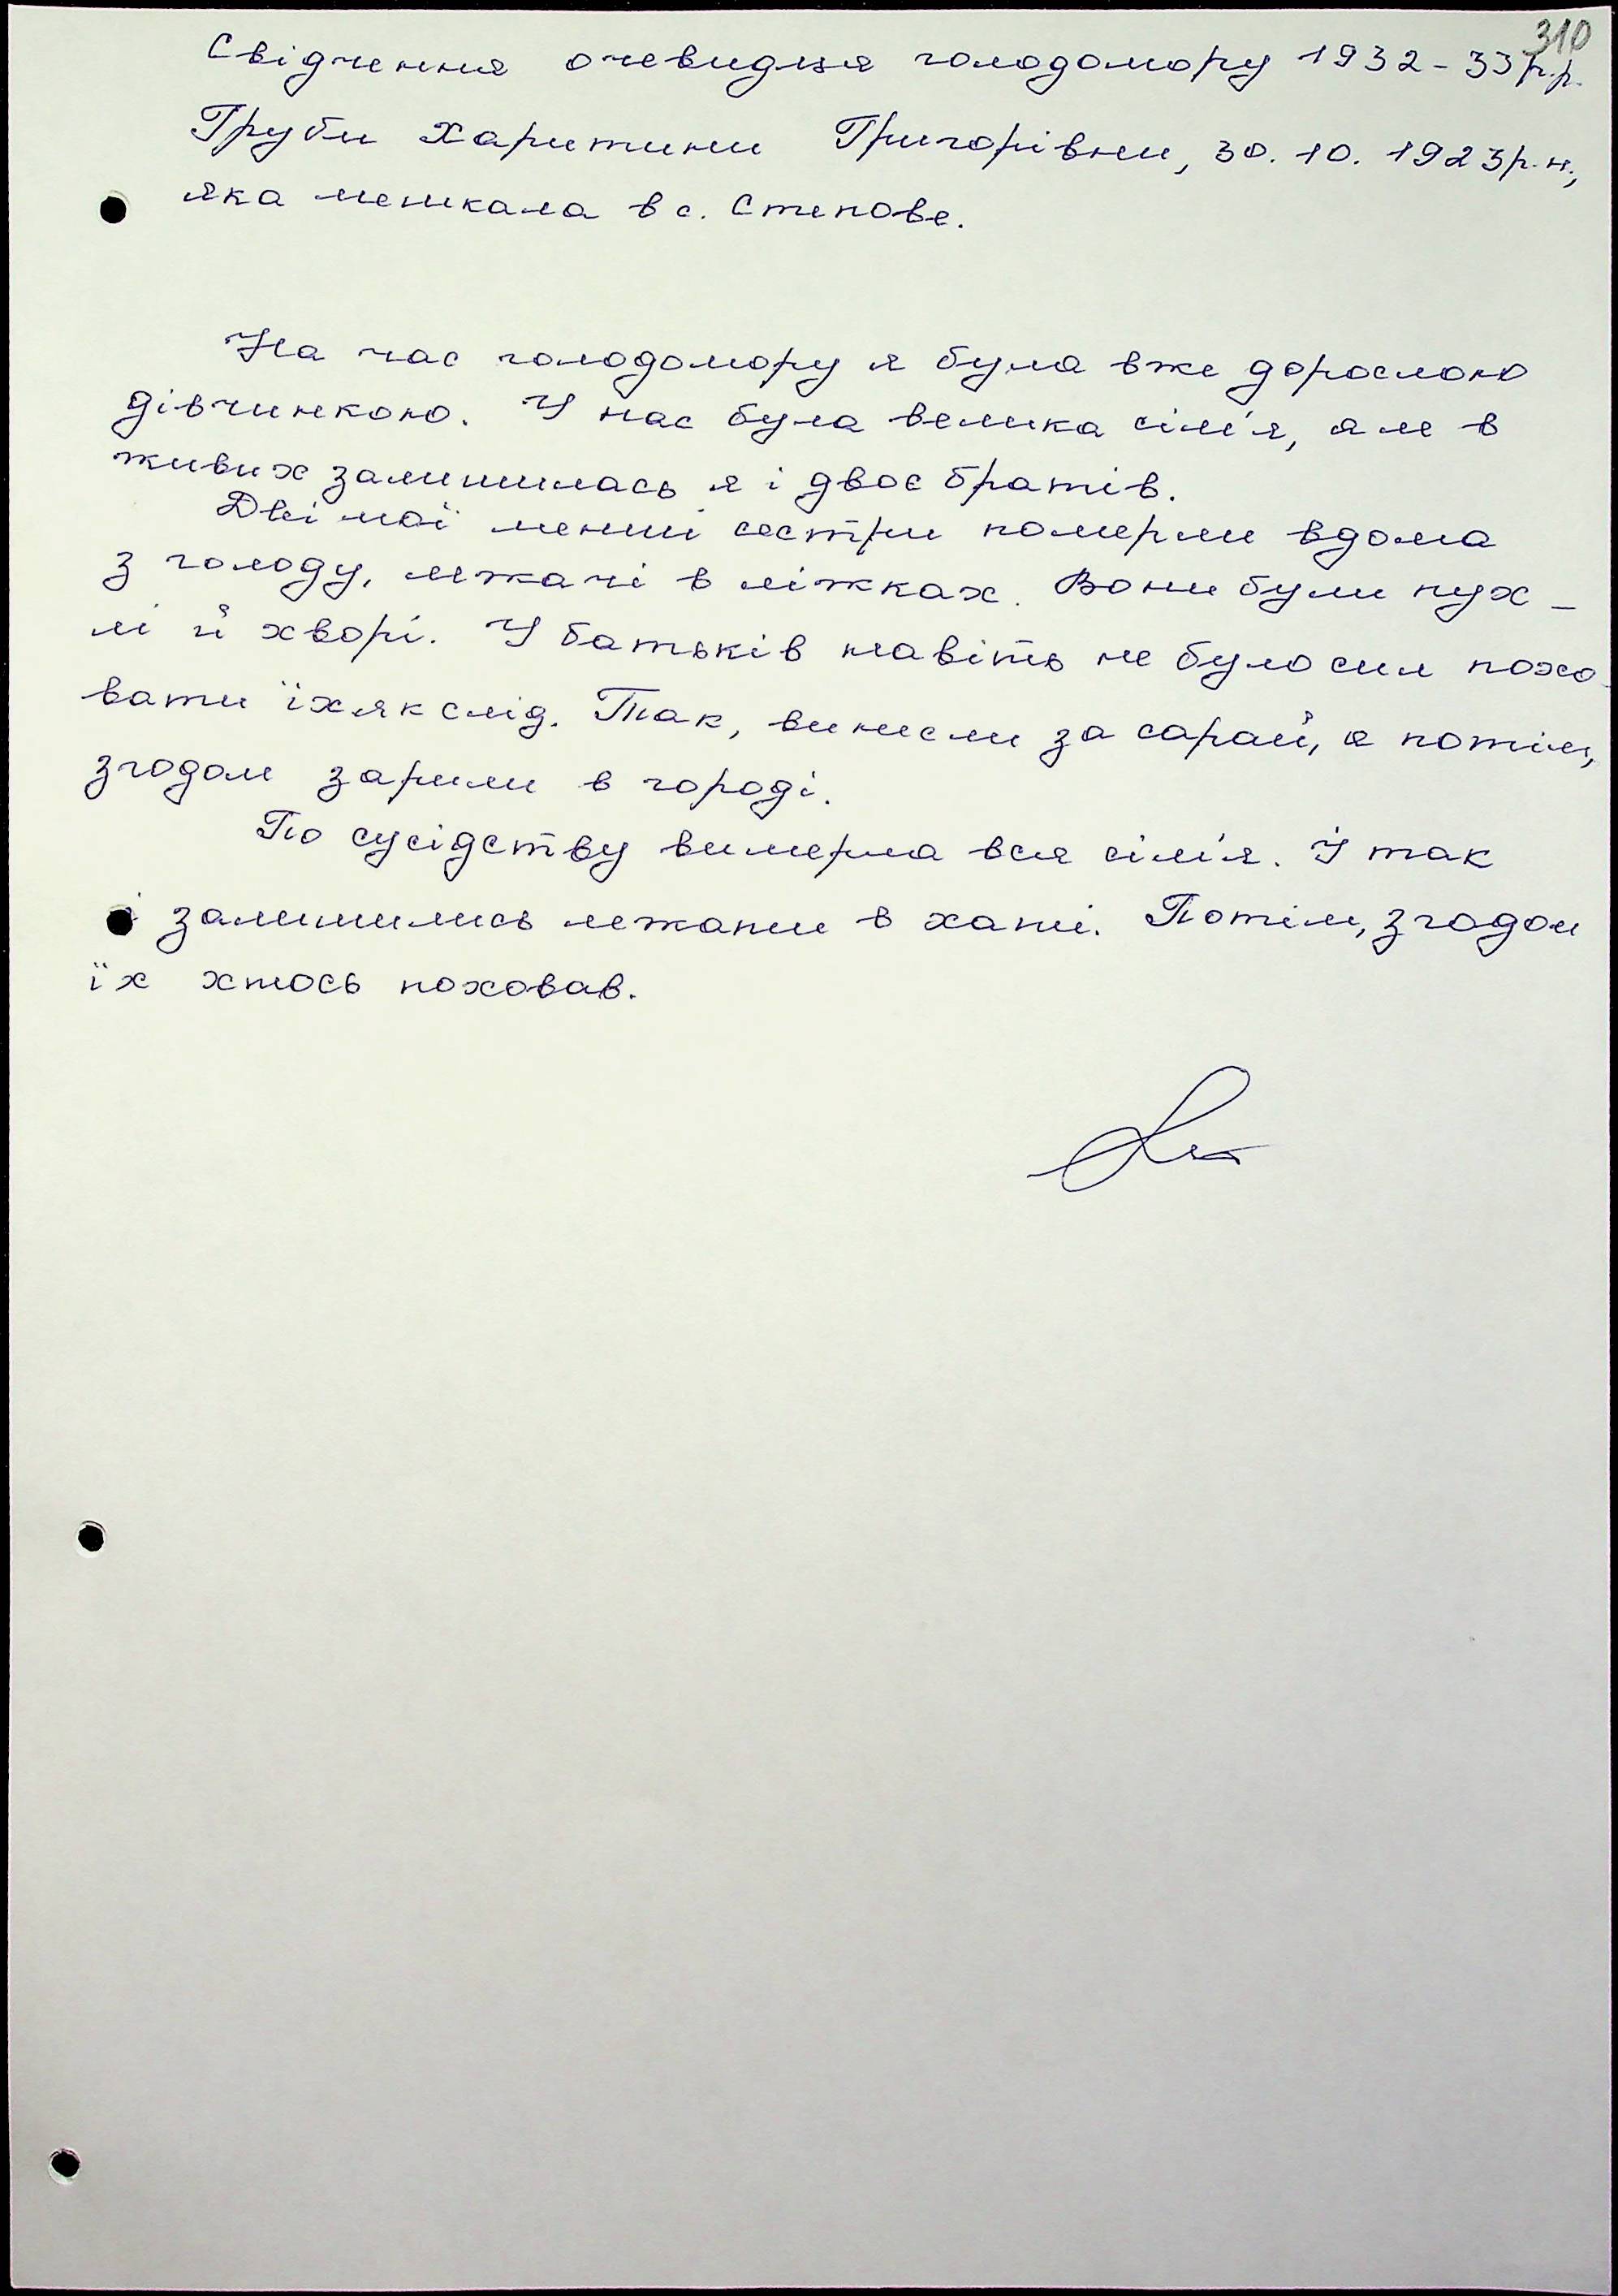 310
Свідчення очевидця голодомору 1932-33 р.р.
Груби Харитини Григорівни, 30.10.1923 р.н.,
яка мешкала в с. Степове.
На час голодомору я була вже дорослою
дівчинкою. У нас була велика сім'я, але в
живих залишилась я і двоє братів.
Дві мої менші сестри померли вдома
з голоду, лежачі в ліжках. Вони були пух-
лі й хворі. У батьків навіть не було сил похо-
вати їх як слід. Так, винесли за сарай, а потім,
згодом зарили в городі.
По сусідству вимерла вся сім'я. І так
і залишились лежати в хаті. Потім, згодом
їх хтось поховав.